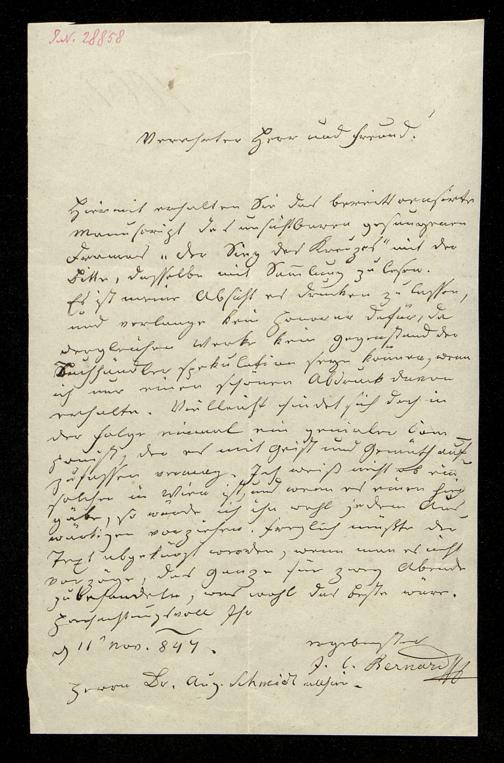 I.N. 28858
Verehrter Herr und Freund!
Hiermit erhalten Sie das bereits censirte
Manuscript des unsichtbaren gesungenen
Dramas „der Sieg des Kreuzes" mit der
Bitte, dasselbe mit Sammlung zu lesen.
Es ist meine Absicht es drucken zu lassen,
und verlange kein Honorar dafür, da
dergleichen Werke kein Gegenstand der
Buchhändler Spekulation seyn können, wenn
ich nur einen schönen Abdruck davon
erhalte. Vielleicht findet sich doch in
der Folge einmal ein genialer Com-
ponist, der es mit Geist und Gemüth auf-
zufassen vermag. Ich weiß nicht ob ein
solcher in Wien ist, und wenn es einen hier
gäbe, so würde ich ihn wohl jedem Aus-
wärtigen vorziehen. Freylich müßte der
Text abgekürzt werden, wenn man es nicht
vorzöge, das Ganze für zwey Abende
zu behandeln, was wohl das beste wäre.
Hochachtungsvoll Ihr
11 Nov. 847.
ergebenster
J. C. Bernard
Herrn Dr. Aug. Schmidt